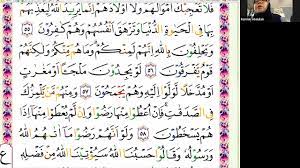 فَلَا تُعْجِبْكَ أَمْوَٰلُهُمْ وَلَآ أَوْلَٰدُهُمْ إِنَّمَا يُرِيدُ ٱللَّهُ لِيُعَذِّبَهُم
بِهَا فِى ٱلْحَيَوٰةِ ٱلدُّنْيَا وَتَزْهَقَ أَنفُسُهُمْ وَهُمْ كَٰفِرُونَ ٥٥
وَيَحْلِفُونَ بِٱللَّهِ إِنَّهُمْ لَمِنكُمْ وَمَا هُم مِّنكُمْ وَلَٰكِنَّهُمْ
قَوْمٌ يَفْرَقُونَ ٥٦ لَوْ يَجِدُونَ مَلْجَـًٔا أَوْ مَغَٰرَٰتٍ
أَوْ مُدَّخَلًا لَّوَلَّوْا۟ إِلَيْهِ وَهُمْ يَجْمَحُونَ ٥٧ وَمِنْهُم مَّن يَلْمِزُكَ
فِى ٱلصَّدَقَٰتِ فَإِنْ أُعْطُوا۟ مِنْهَا رَضُوا۟ وَإِن لَّمْ يُعْطَوْا۟ مِنْهَآ إِذَا
هُمْ يَسْخَطُونَ ٥٨ وَلَوْ أَنَّهُمْ رَضُوا۟ مَآ ءَاتَىٰهُمُ ٱللَّهُ
وَرَسُولُهُۥ وَقَالُوا۟ حَسْبُنَا ٱللَّهُ سَيُؤْتِينَا ٱللَّهُ مِن فَضْلِهِۦ